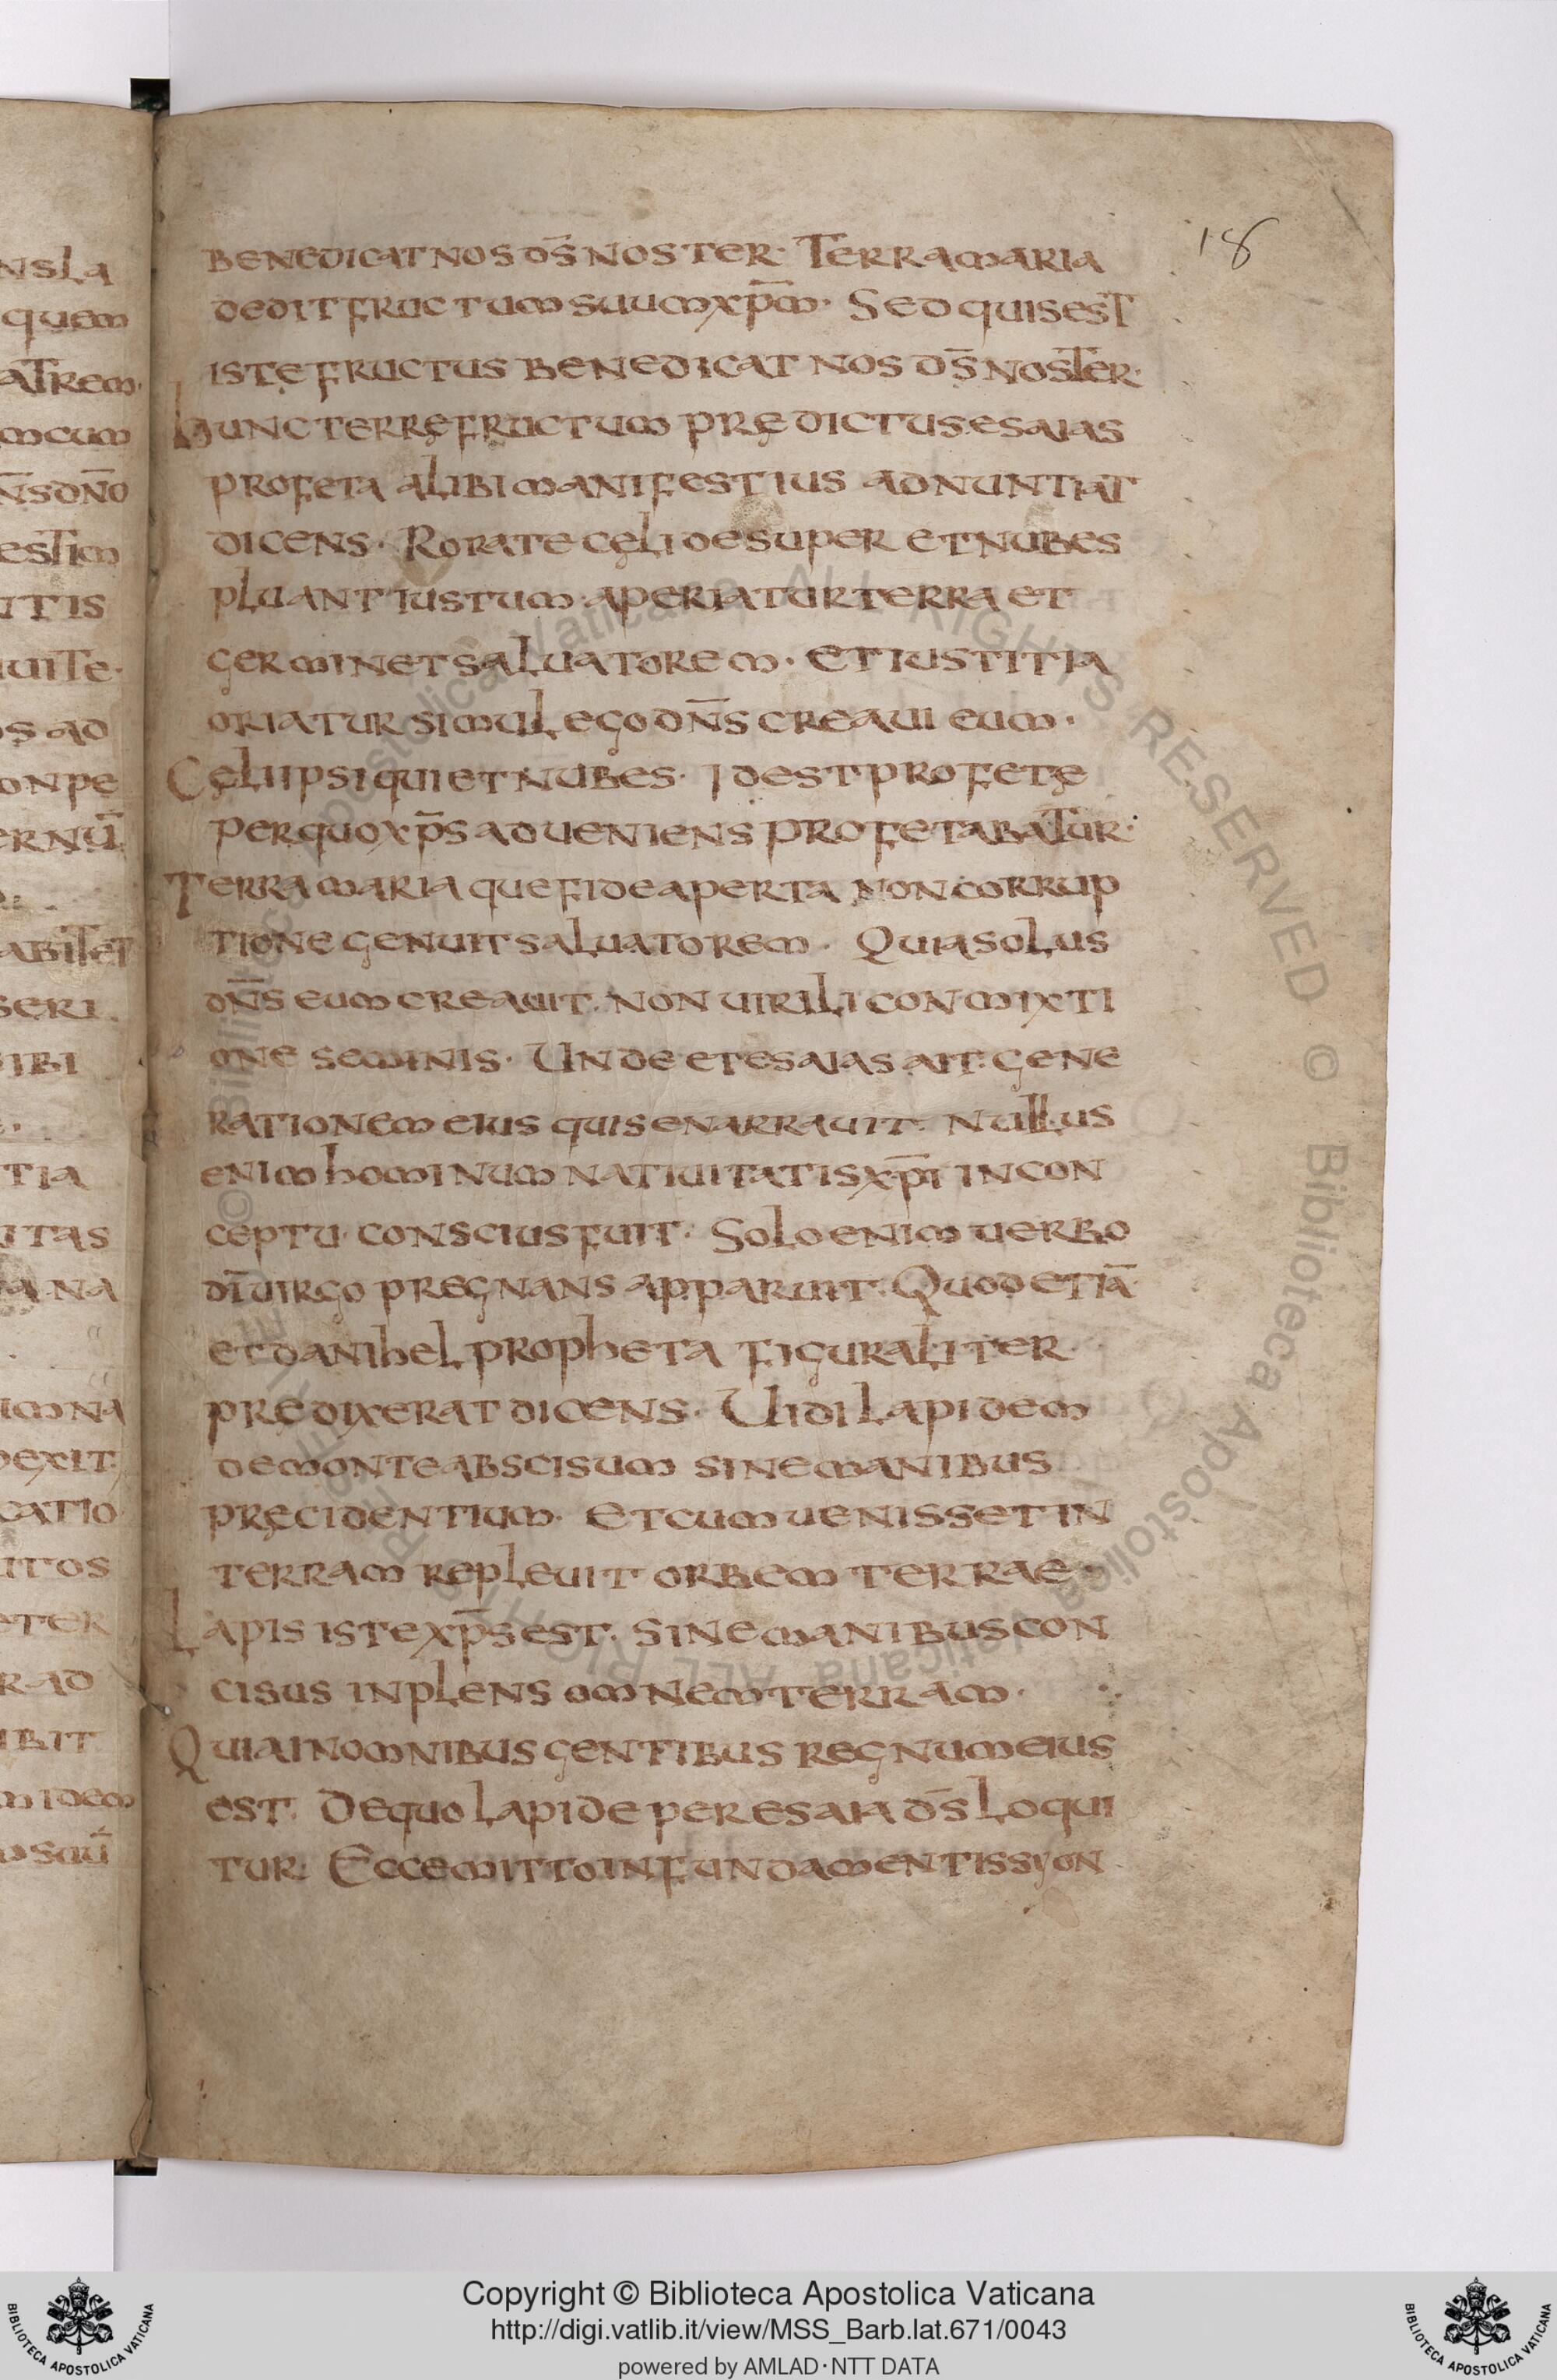 18
BENEDICAT NOS D̄S NOSTER· TERRA MARIA
DEDIT FRUCTUM SUUM XP̄M· SED QUIS EST
ISTE FRUCTUS BENEDICAT NOS D̄S NOSTER·
HUNC TERRĘ FRUCTUM PRĘDICTUS ESAIAS
PROFETA ALIBI MANIFESTIUS ADNUNTIAT
DICENS· RORATE CĘLI DESUPER ET NUBES
PLUANT IUSTUM· APERIATUR TERRA ET
GERMINET SALUATOREM· ET IUSTITIA
ORIATUR SIMUL EGO DN̄S CREAUI EUM·
CĘLI IPSI QUI ET NUBES· IDEST PROFETĘ
PER QUO XP̄S ADUENIENS PROFETABATUR·
TERRA MARIA QUE FIDE APERTA NON CORRUP
TIONE GENUIT SALUATOREM· QUIA SOLUS
DN̄S EUM CREAUIT· NON UIRILI CONMIXTI
ONE SEMINIS· UNDE ET ESAIAS AIT· GENE
RATIONEM EIUS QUIS ENARRAUIT· NULLUS
ENIM HOMINUM NATIUITATIS XP̄I IN CON
CEPTU CONSCIUS FUIT· SOLO ENIM UERBO
DĪ UIRGO PREGNANS APPARUIT· QUOD ETIĀ
ET DANIHEL PROPHETA FIGURALITER
PREDIXERAT DICENS· UIDI LAPIDEM
DE MONTE ABSCISUM SINE MANIBUS
PRĘCIDENTIUM· ET CUM UENISSET IN
TERRAM REPLEUIT ORBEM TERRAE·
LAPIS ISTE XP̄S EST· SINE MANIBUS CON
CISUS INPLENS OMNEM TERRAM·
QUIA IN OMNIBUS GENTIBUS REGNUM EIUS
EST· DE QUO LAPIDE PER ESAIA D̄S LOQUI
TUR· ECCE MITTO IN FUNDAMENTIS SYON
Copyright © Biblioteca Apostolica Vaticana
http://digi.vatlib.it/view/MSS_Barb.lat.671/0043
powered by AMLAD·NTT DATA
BIBLIOTECA APOSTOLICA VATICANA
BIBLIOTECA APOSTOLICA VATICANA